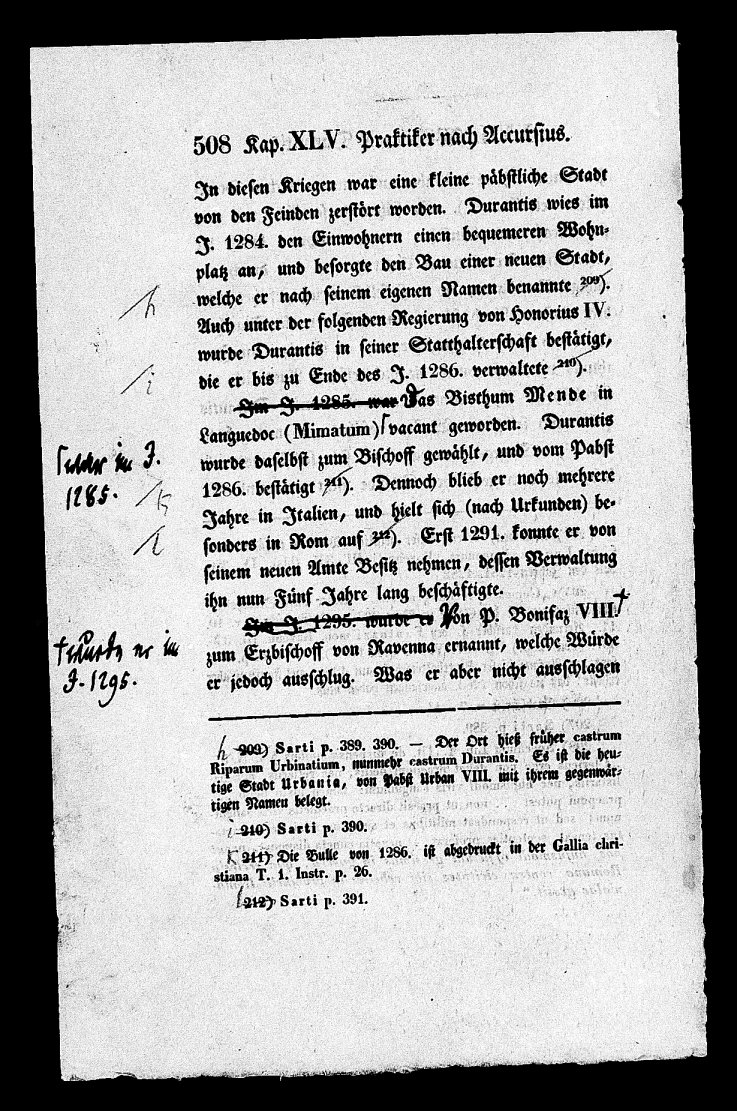 508 Kap. XLV. Praktiker nach Accursius.
In diesen Kriegen war eine kleine päbstliche Stadt
von den Feinden zerstört worden. Durantis wies im
J. 1284. den Einwohnern einen bequemeren Wohn-
platz an, und besorgte den Bau einer neuen Stadt,
welche er nach seinem eigenen Namen benannte 209).
h
Auch unter der folgenden Regierung von Honorius IV.
wurde Durantis in seiner Statthalterschaft bestätigt,
die er bis zu Ende des J. 1286. verwaltete 210).
i
Im J. 1285. war Das Bisthum Mende in
Languedoc (Mimatum) vacant geworden. Durantis
wurde daselbst zum Bischoff gewählt, und vom Pabst
im J.
1285.
1286. bestätigt 211). Dennoch blieb er noch mehrere
k
Jahre in Italien, und hielt sich (nach Urkunden) be-
sonders in Rom auf 212). Erst 1291. konnte er von
l
seinem neuen Amte Besitz nehmen, dessen Verwaltung
ihn nun Fünf Jahre lang beschäftigte.
Im J. 1295. wurde er Von P. Bonifaz VIII. †
† wurde er im
J. 1295.
zum Erzbischoff von Ravenna ernannt, welche Würde
er jedoch ausschlug. Was er aber nicht ausschlagen
h 209) Sarti p. 389. 390. — Der Ort hieß früher castrum
Riparum Urbinatium, nunmehr castrum Durantis. Es ist die heu-
tige Stadt Urbania, von Pabst Urban VIII. mit ihrem gegenwär-
tigen Namen belegt.
i 210) Sarti p. 390.
k 211) Die Bulle von 1286. ist abgedruckt in der Gallia chri-
stiana T. 1. Instr. p. 26.
l 212) Sarti p. 391.